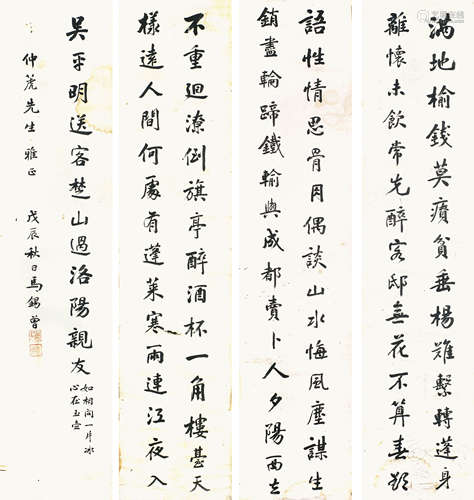 滿地榆錢莫療貧垂楊難繫轉蓬身
離懷未飲常先醉客邸無花不算春欲
語性情思骨肉偶談山水悔風塵謀生
銷盡輪蹄鐵輸與成都賣卜人夕陽西去
不重迴潦倒旗亭醉酒杯一角樓臺天
樣遠人間何處有蓬萊寒雨連江夜入
吳平明送客楚山過洛陽親友
如相問一片冰
心在玉壺
仲虎先生雅正 戊辰秋日馬錫曾